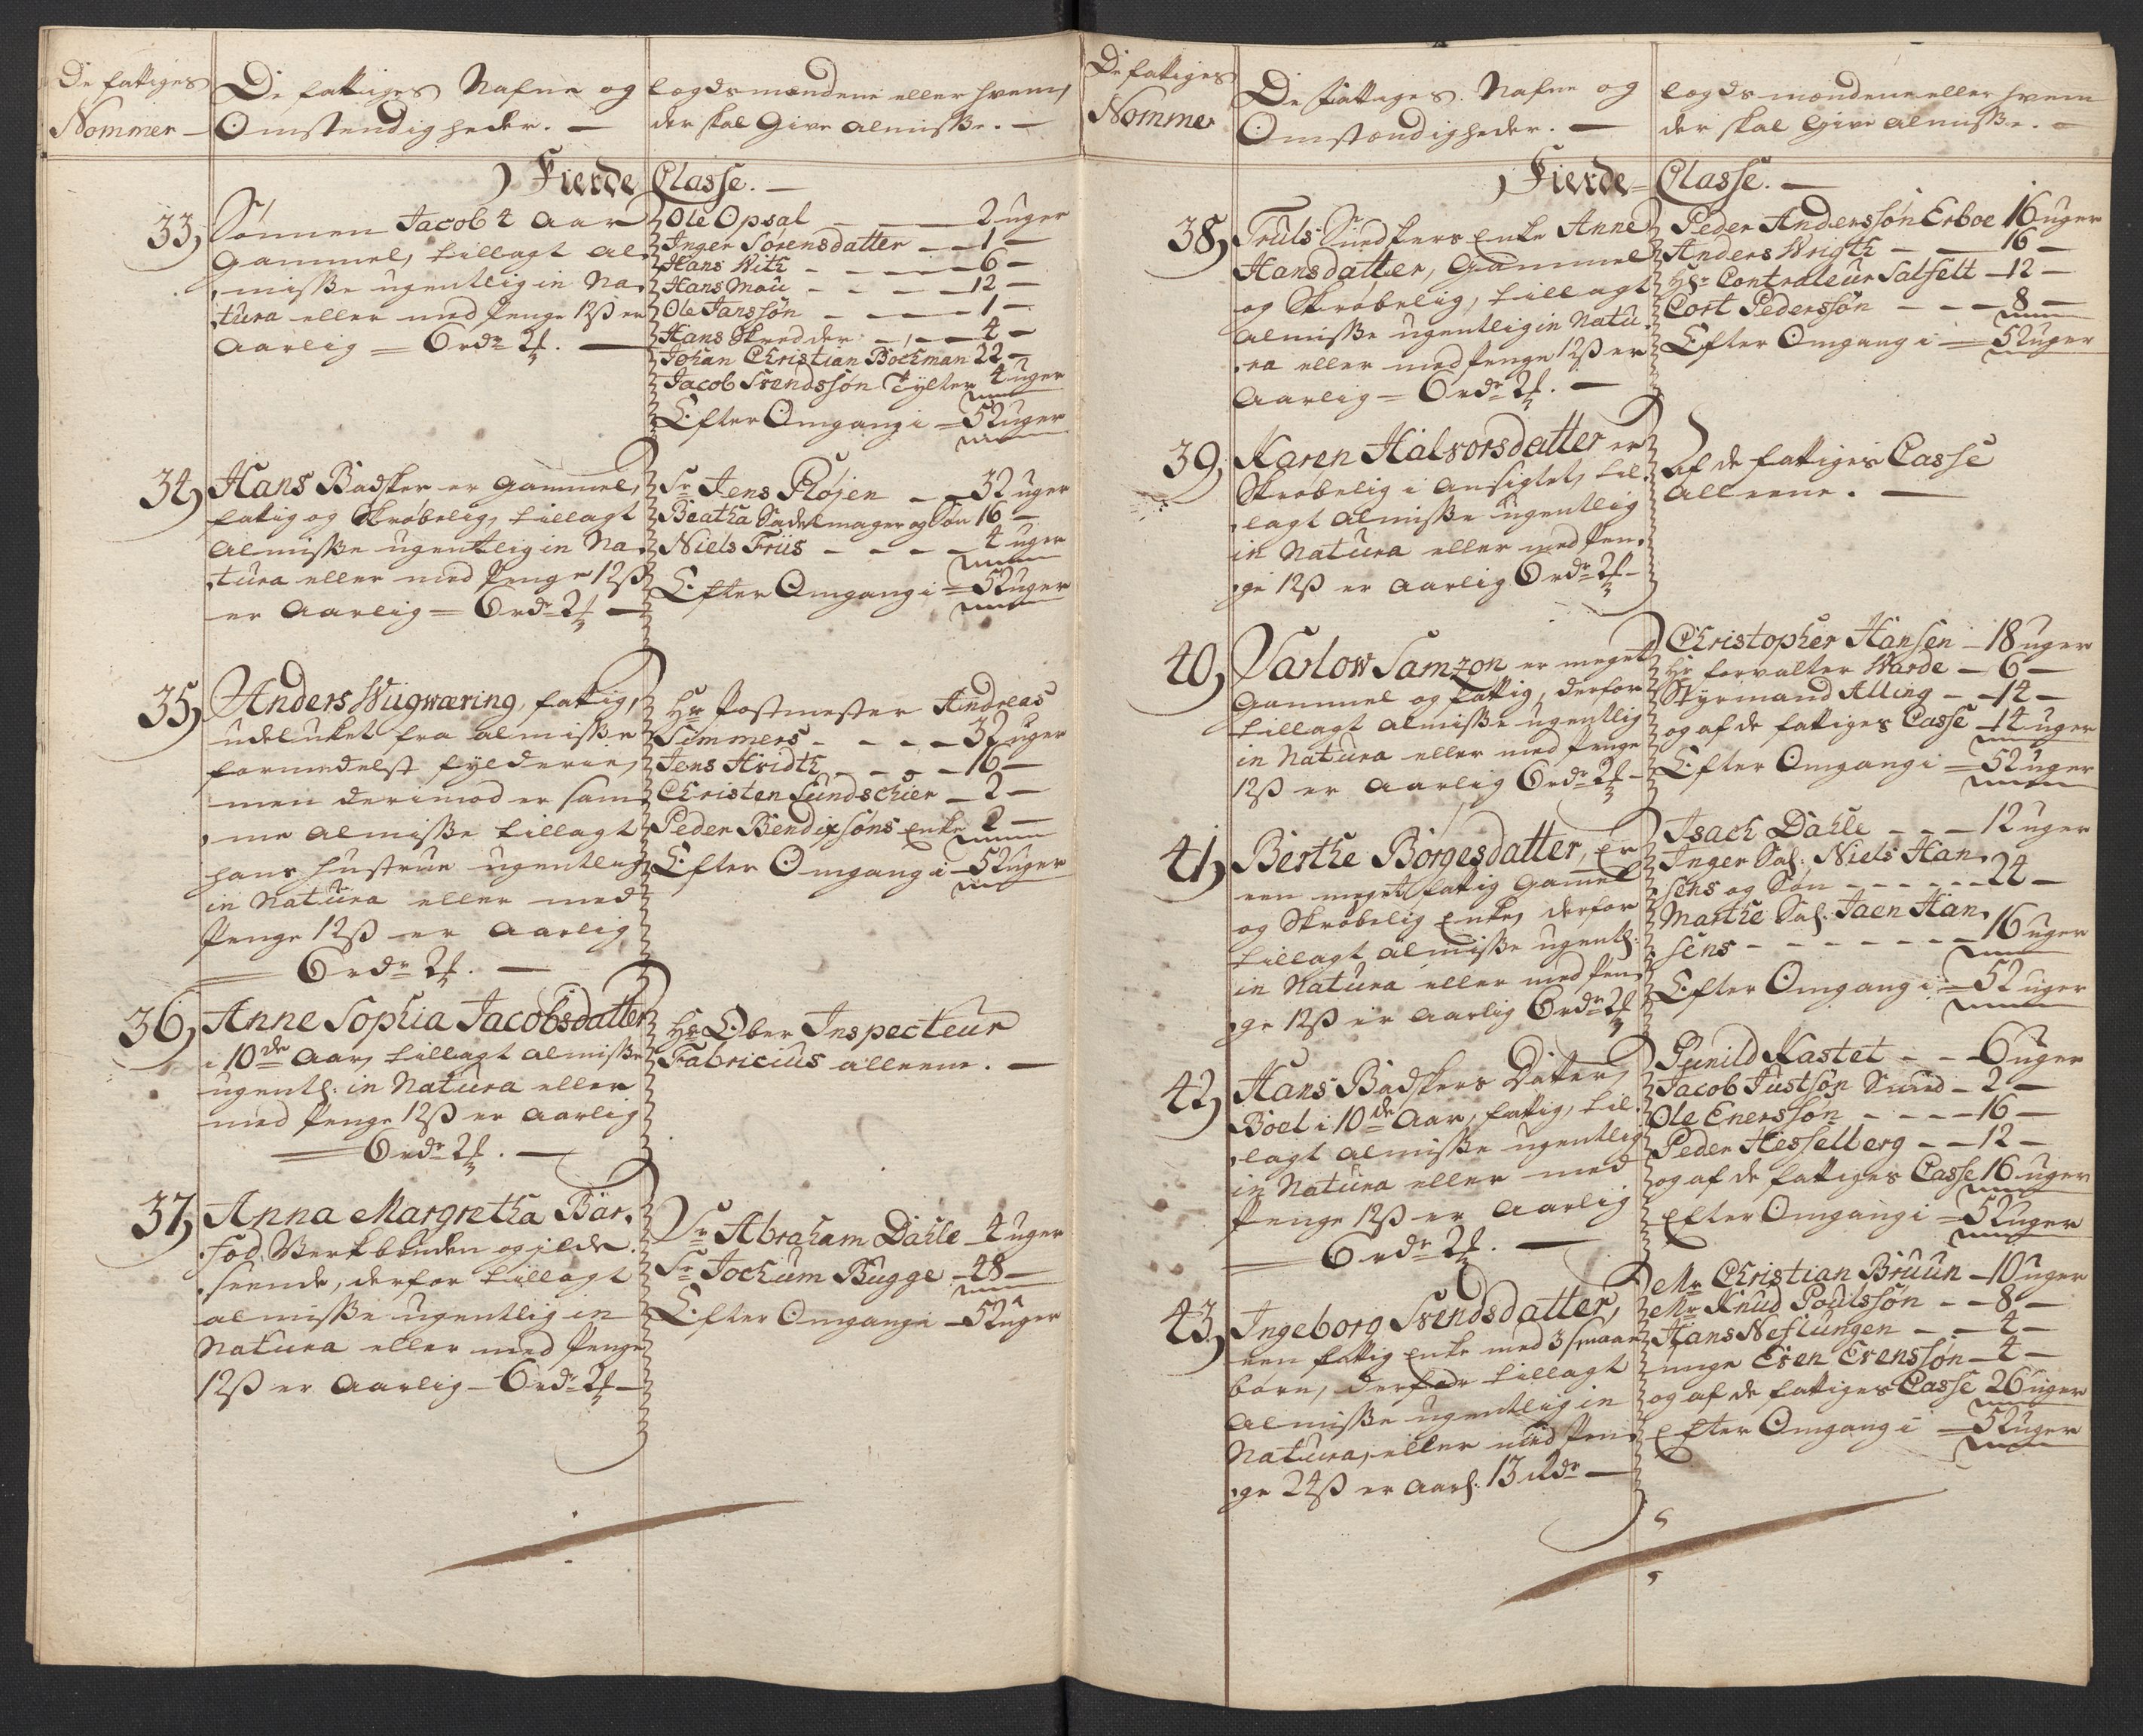 De fattiges
Nommer
De fattiges Nafne og
Omstendigheder. —
Legdsmændene eller hvem
der skal Give Almisse. —
Fierde Classe. —
33, Sønnen Jacob 4 Aar
Gammel, tillagt Al-
misse ugentlig in Na-
tura eller med Penge 12ß er
Aarlig = 6 rdr 2 ƒ. —
Ole Opsal — — 2 uger
Inger Sørensdatter — — 1 —
Hans With — — — 6 —
Hans Moü — — — 12 —
Ole Janssøn — — — 1 —
Hans Skredder — — — 4 —
Johan Christian Bochman 22 —
Jacob Svendssøn Tylter 4 uger
Efter Omgang i = 52 uger
34, Hans Badsker er Gammel,
fatig og Skrøbelig, tillagt
Almisse ugentlig in Na-
tura eller med Penge 12ß
er Aarlig = 6 rdr 2 ƒ —
Sr Jens Pløjen — — 32 uger
Beatha Sadelmager og Søn 16 —
Niels Friis — — — — 4 uger
Efter Omgang i = 52 uger
35, Anders Wügwæring, fattig,
udelukt fra Almisse
formedelst fylderie,
men derimod er sam-
me Almisse tillagt
hans Hustrue ugentlig
in Natura eller med
Penge 12ß er Aarlig
= 6 rdr 2 ƒ. —
Hr Postmester Andreas
Simmers — — — — 32 uger
Jens Hvidth — — — 16 —
Christen Sundschier — 2 —
Peder Bendixsøns Enke 2 —
Efter Omgang i — 52 uger
36, Anne Sophia Jacobsdatter
i 10de Aar, tillagt Almisse
ugentl: in Natura eller
med Penge 12ß er Aarlig
= 6 rdr 2 ƒ. —
Hr Ober Inspecteur
Fabricius alleene. —
37, Anna Margretha Bar-
fod, Verkbruden og ilde
seende, derfor tillagt
Almisse ugentlig in
Natura eller med Penge
12ß er Aarlig — 6 rdr 2 ƒ —
Sr Abraham Dahle — 4 uger
Sr Jochum Bugge — 48 —
Efter Omgang i — 52 uger
De fattiges
Nommer
De fattiges Nafne og
Omstændigheder. —
Legdsmændene eller hvem
der skal Give Almisse. —
Fierde = Classe. —
38, Truls Snedkers Enke Anne
Hansdatter, Gammel
og Skrøbelig, tillagt
Almisse ugentlig in Natu-
ra eller med Penge 12ß er
Aarlig = 6 rdr 2 ƒ. —
Peder Anderssøn Erboe 16 uger
Anders Wrigth — — 16 —
Hr Contraleur Salfelt — 12 —
Cort Pederssøn — — — 8 —
Efter Omgang i = 52 uger
39, Karen Halvorsdatter er
Skrøbelig i Ansigtet, til-
lagt Almisse ugentlig
in Natura eller med Pen-
ge 12ß er Aarlig 6 rdr 2 ƒ —
Af de fattiges Casse
alleene. —
40, Varlow Samzon er meget
Gammel og fattig, derfor
tillagt Almisse ugentlig
in Natura eller med Penge
12ß er Aarlig 6 rdr 2 ƒ —
Christopher Hansen — 18 uger
Hr Forvalter Warde — 6 —
Styrmand Alling — — 14 —
og af de fattiges Casse — 14 uger
Efter Omgang i = 52 uger
41, Berthe Børgesdatter, er
een meget fattig Gamel
og Skrøbelig Enke, derfor
tillagt Almisse ugentl:
in Natura eller med Pen-
ge 12ß er Aarlig 6 rdr 2 ƒ
Isach Dahle — — — 12 uger
Inger Sal: Niels Han-
sens og Søn — — — — 24 —
Marthe Sal: Jaen Han-
sens — — — — — — 16 uger
Efter Omgang i = 52 uger
42, Hans Badskers Datter,
Boel i 10de Aar, fattig, til-
lagt Almisse ugentlig
in Natura eller med
Penge 12ß er Aarlig
= 6 rdr 2 ƒ. —
Gunild Kastet — — 6 uger
Jacob Justsøn Smed — 2 —
Ole Enerssøn — — — — 16 —
Peder Hesselberg — — 12 —
og af de fattiges Casse 16 uger
Efter Omgang i = 52 uger
43, Ingeborg Svendsdatter,
een fattig Enke med 3 smaae
børn, derfor tillagt
Almisse ugentlig in
Natura, eller med Pen-
ge 24ß er Aarl: 13 rdr —
Mr Christian Bruun — 10 uger
Mr Knud Poulssøn — — 8 —
Hans Neflungen — — 4 —
unge Even Evenssøn — 4 —
og af de fattiges Casse 26 uger
Efter Omgang i = 52 uger